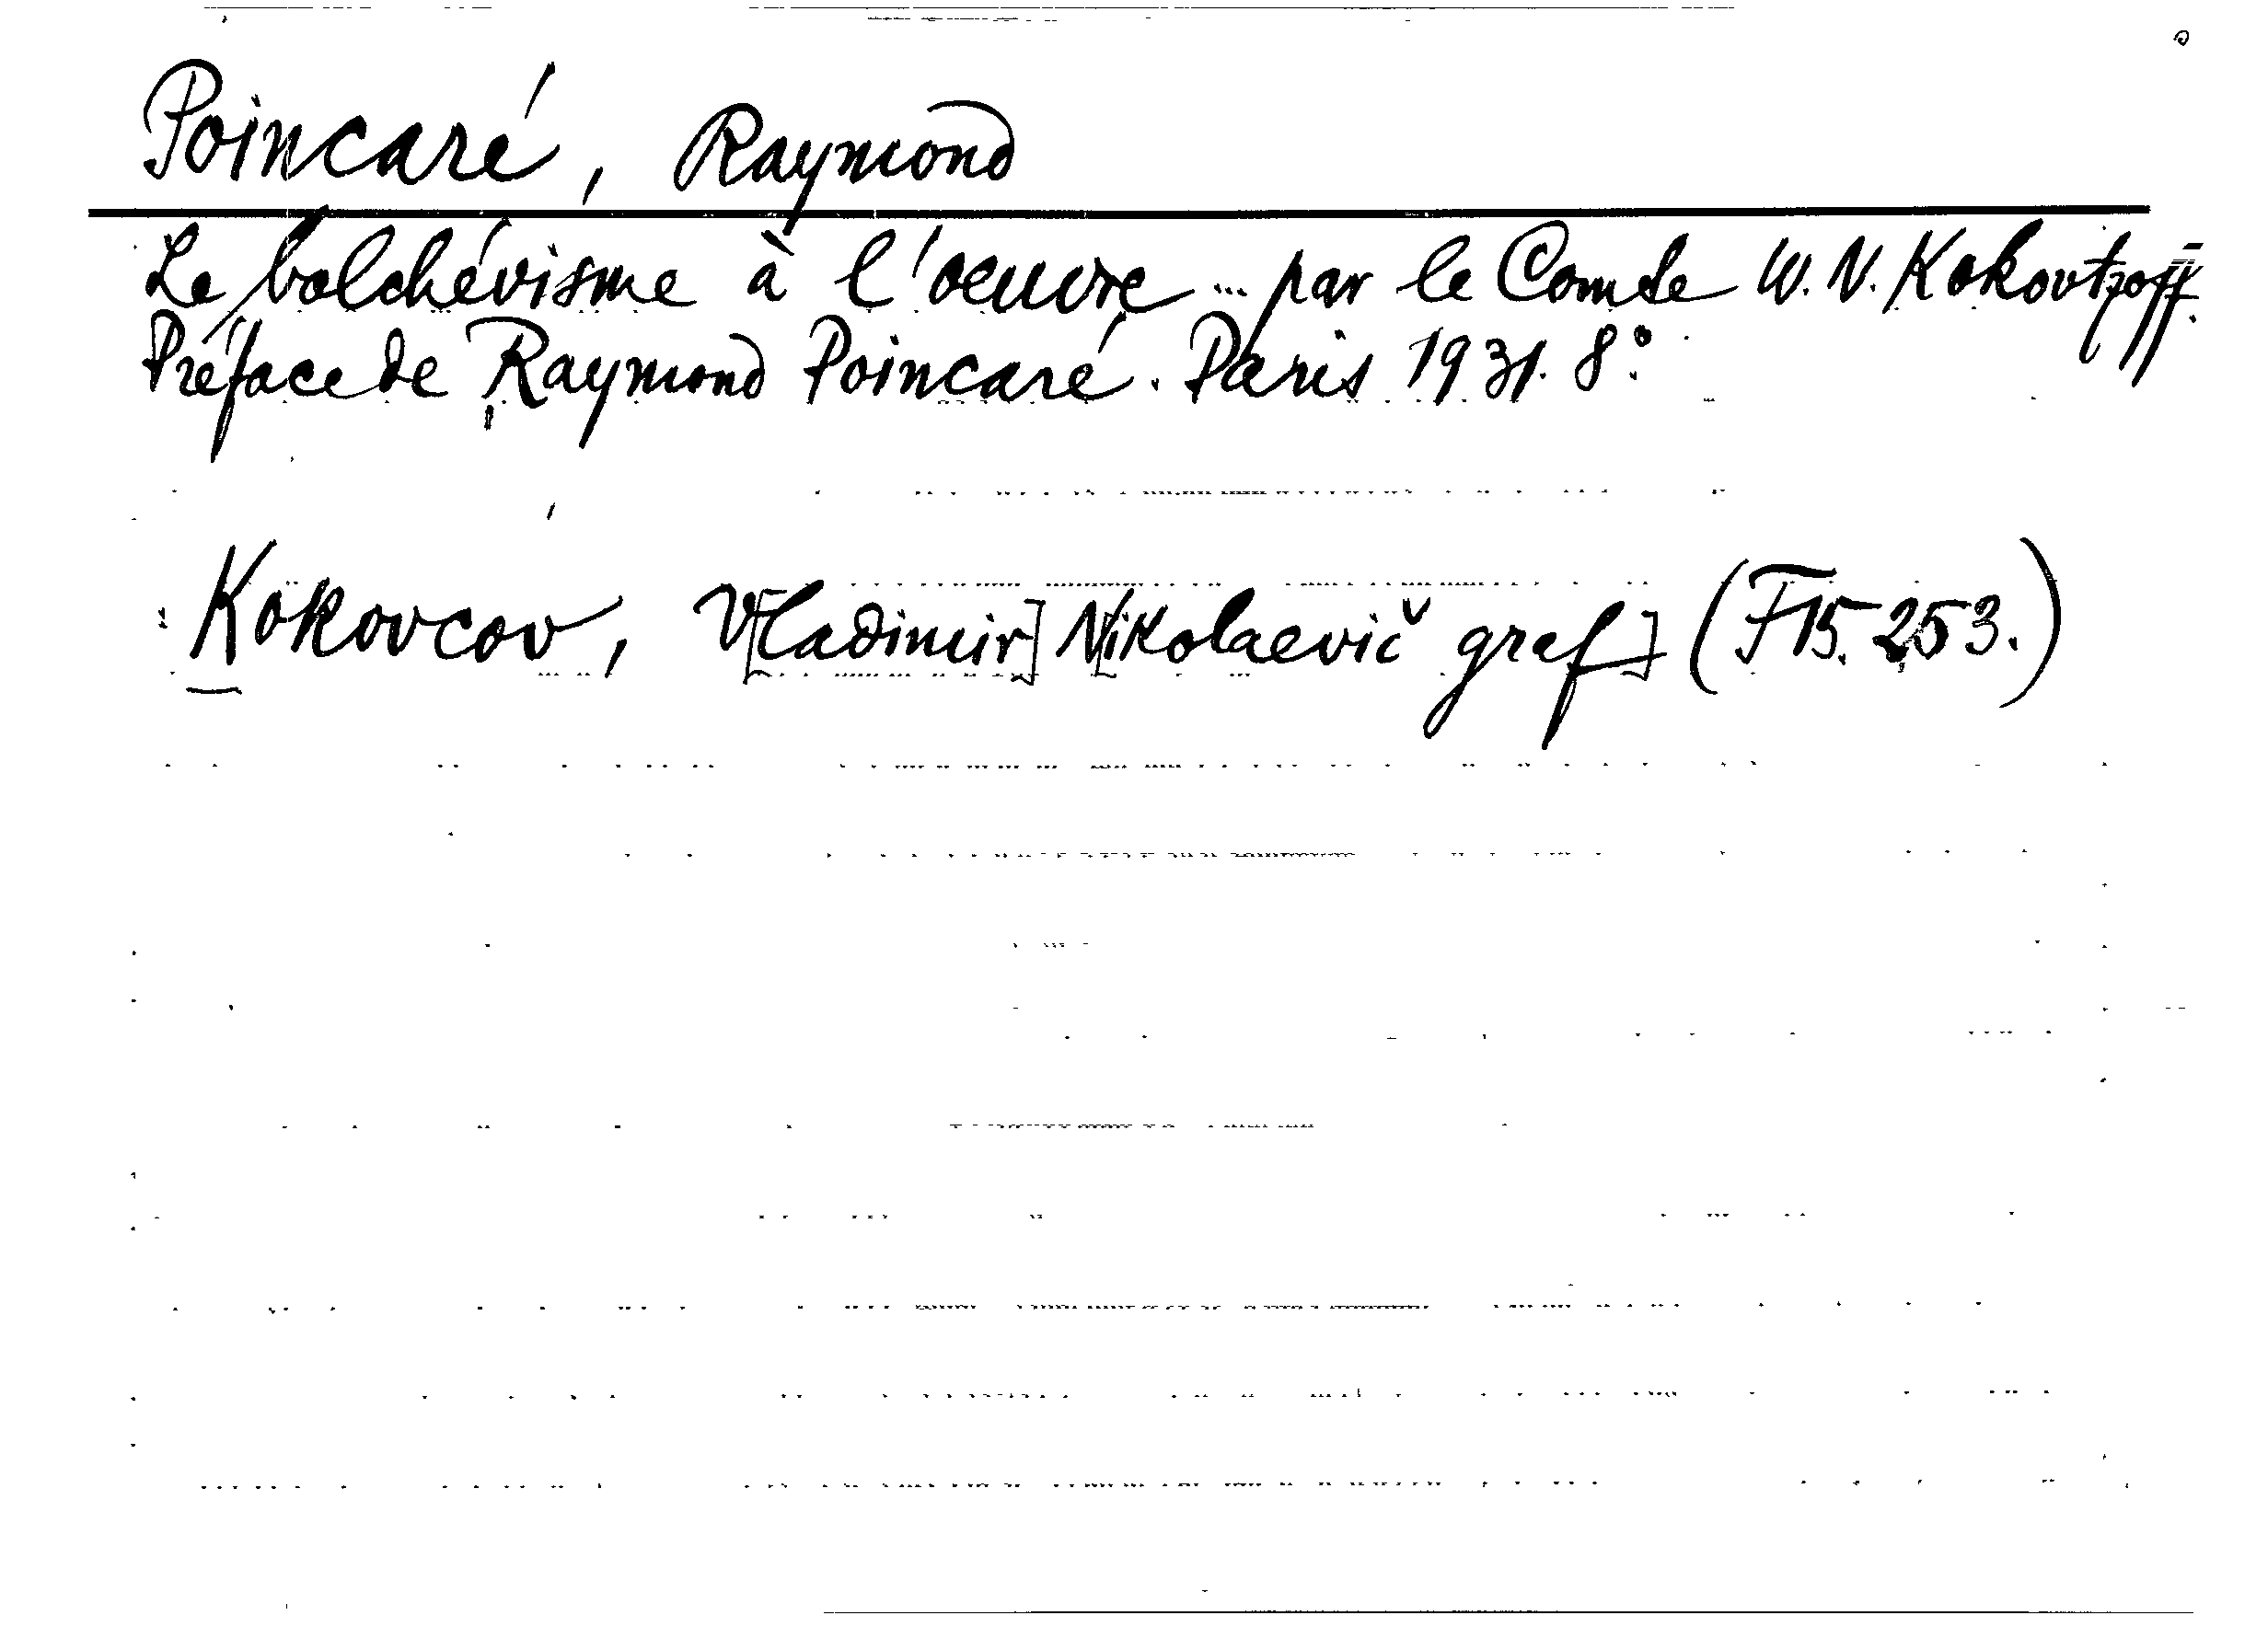 Poincaré, Raymond
Le bolchévisme à l'oeuvre ... par le Comte W. N. Kokovtzoff.
Préface de Raymond Poincaré. Paris 1931. 8°.
Kokovcov, V[ladimir] N[ikolaevič graf] (F15.253.)